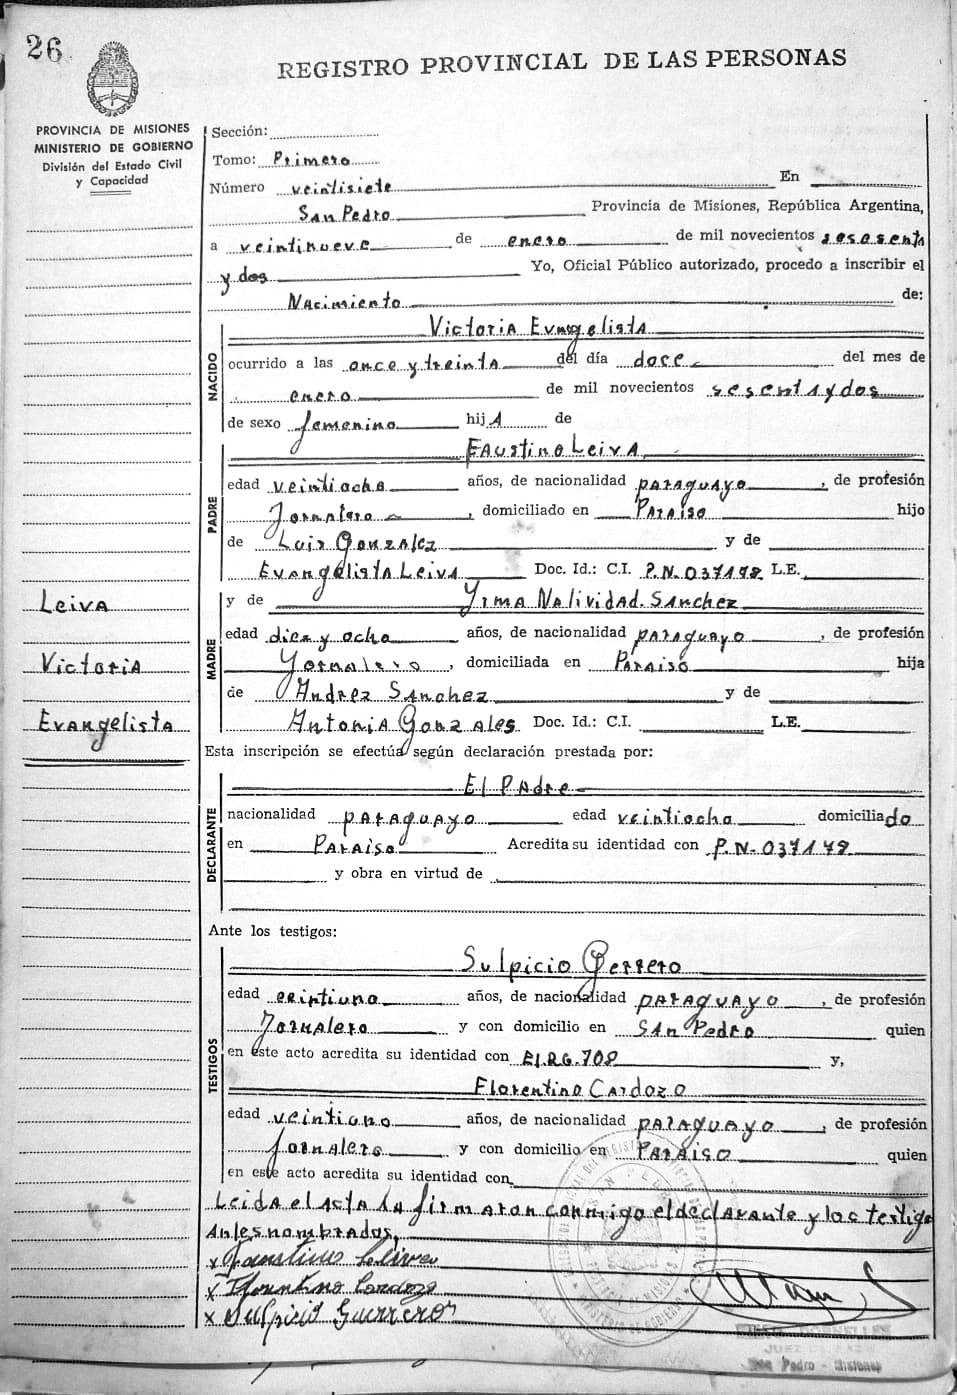 26
REGISTRO PROVINCIAL DE LAS PERSONAS
PROVINCIA DE MISIONES
MINISTERIO DE GOBIERNO
División del Estado Civil
y Capacidad
Sección:
Tomo: Primero
Número veintisiete En
San Pedro Provincia de Misiones, República Argentina,
a veintinueve de enero de mil novecientos sesesenta
y dos Yo, Oficial Público autorizado, procedo a inscribir el
Nacimiento de:
NACIDO
Victoria Evangelista
ocurrido a las once y treinta del día doce del mes de
enero de mil novecientos sesenta y dos
de sexo femenino hijA de
PADRE
Faustino Leiva
edad veintiocho años, de nacionalidad paraguayo, de profesión
Jornalero, domiciliado en Paraiso hijo
de Luis Gonzalez y de
Evangelista Leiva Doc. Id.: C.I. P.N. 037178 L.E.
Leiva
Victoria
Evangelista
MADRE
y de Yrma Natividad Sanchez
edad diez y ocho años, de nacionalidad paraguayo, de profesión
Jornalero, domiciliada en Paraiso hija
de Andrez Sanchez y de
Antonia Gonzales Doc. Id.: C.I. L.E.
Esta inscripción se efectúa según declaración prestada por:
DECLARANTE
El Padre
nacionalidad paraguayo edad veintiocho domiciliado
en Paraiso Acredita su identidad con P.N. 037178
y obra en virtud de
Ante los testigos:
TESTIGOS
Sulpicio Gerrero
edad veintiuno años, de nacionalidad paraguayo, de profesión
Jornalero y con domicilio en San Pedro quien
en este acto acredita su identidad con EI.RG.708 y,
Florentino Cardozo
edad veintiuno años, de nacionalidad paraguayo, de profesión
Jornalero y con domicilio en Paraiso quien
en este acto acredita su identidad con
Leida el acta la firmaron conmigo el declarante y los testigo
antesnombrados,
x Faustino Leiva
x Florentino Cardozo
x Sulpicio Guerrero
San Pedro - Misiones